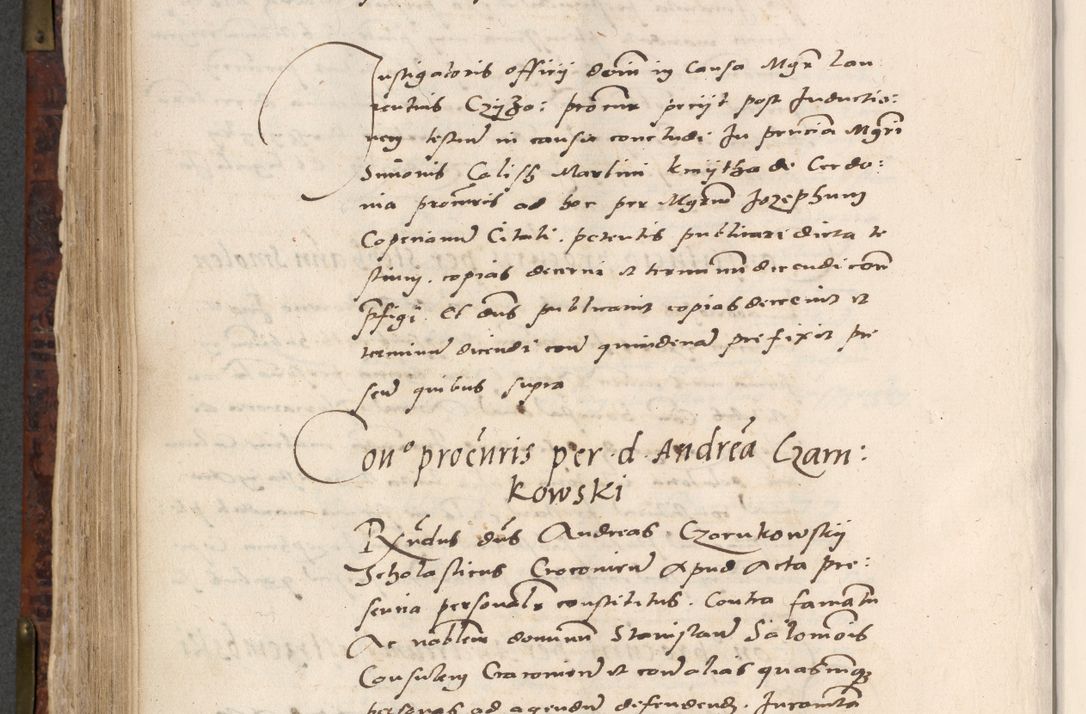 Instigatoris officij domini in causa Mgr̄ Lau
rentius Czyżo: procur petijt post Inductio:
nem testiū in causa concludi In pn̄tia Mgrī
Simonis Calisch Martini Knijthał de Cerdo:
nia procuris ad hoc per Mgrum Jozephum
Copecianū Citati. petentis publicari dicta te
stium. copias decerni et terminū dicendi con̄
p̄figi. Et dn̄s publicavit copias decrevit et
terminū dicendi con̄ quindenā prefixit pre
sen̄ quibus supra
Con° procuris per d. Andreā Czarn:
kowski
Rxn̄dus dn̄s Andreas Czarnkowskij
Scholasticus Cracovien̄ Apud Acta pre:
sentia personalr̄ constitutus. Contra famatū
Ac nobilem dominū Stanislaū Salomonis
Consulem Cracovien̄ et con̄ alias quascūnq̨
personas ad agendū defendendū. Iuramēta